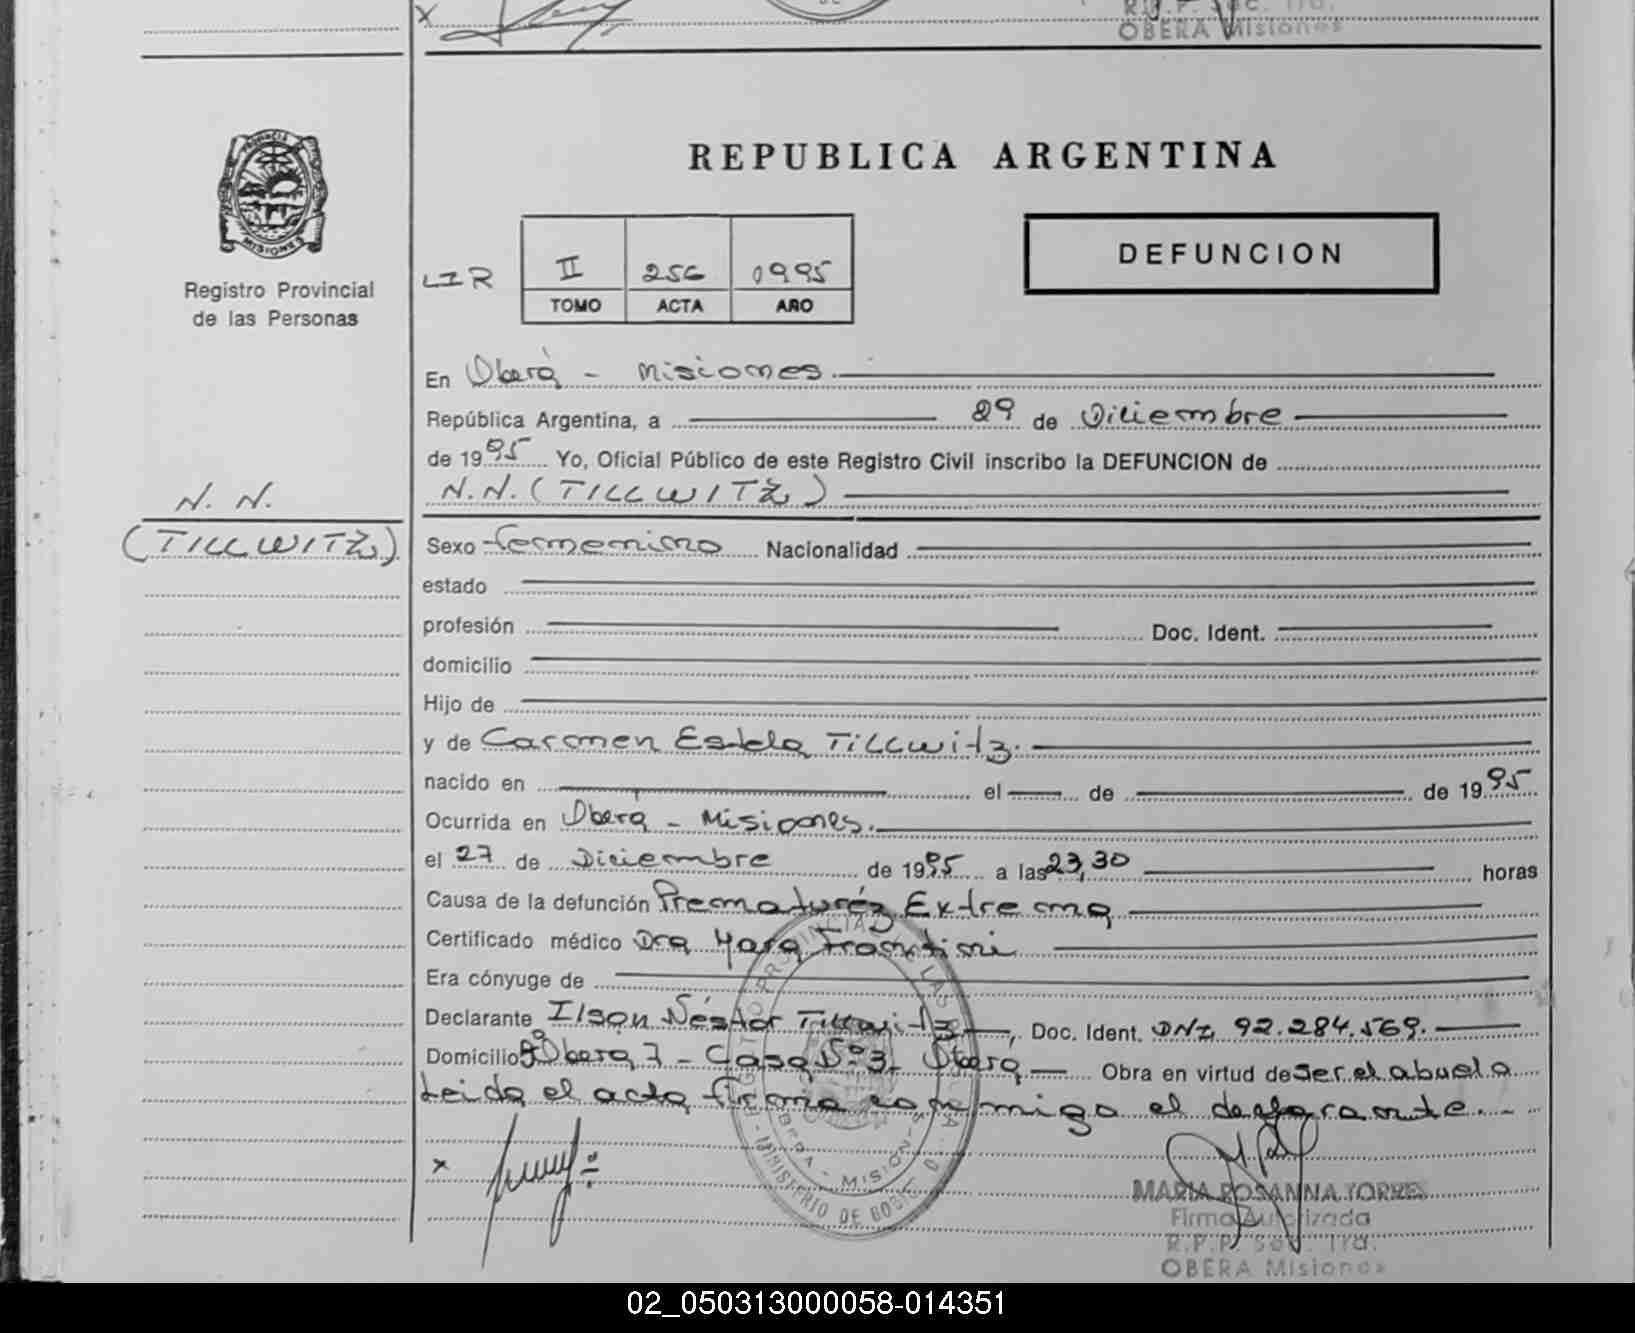 OBERA Misiones
PROVINCIA
MISIONES
Registro Provincial
de las Personas
REPUBLICA ARGENTINA
DEFUNCION
II 256 1995
TOMO ACTA AÑO
En Oberá - Misiones.
República Argentina, a 29 de Diciembre
de 1995 Yo, Oficial Público de este Registro Civil inscribo la DEFUNCION de
N.N. (TILLWITZ)
N. N.
(TILLWITZ)
Sexo femenino Nacionalidad
estado
profesión Doc. Ident.
domicilio
Hijo de
y de Carmen Estela Tillwitz.
nacido en el de de 1995
Ocurrida en Obera - Misiones.
el 27 de Diciembre de 1995 a las 23,30 horas
Causa de la defunción Prematuréz Extrema
Certificado médico Dra Yara
Era cónyuge de
Declarante Ilson Néstor Tillwitz, Doc. Ident. DNI, 92.284.569.
Domicilio Bº Obera 7 - Casa Nº 3, Obera Obra en virtud de ser el abuelo
Leida el acta firma conmigo el declarante.
x
MARIA ROSANNA TORRES
Firma Autorizada
R.P.P. Sec. 1ra.
OBERA Misiones
02_050313000058-014351